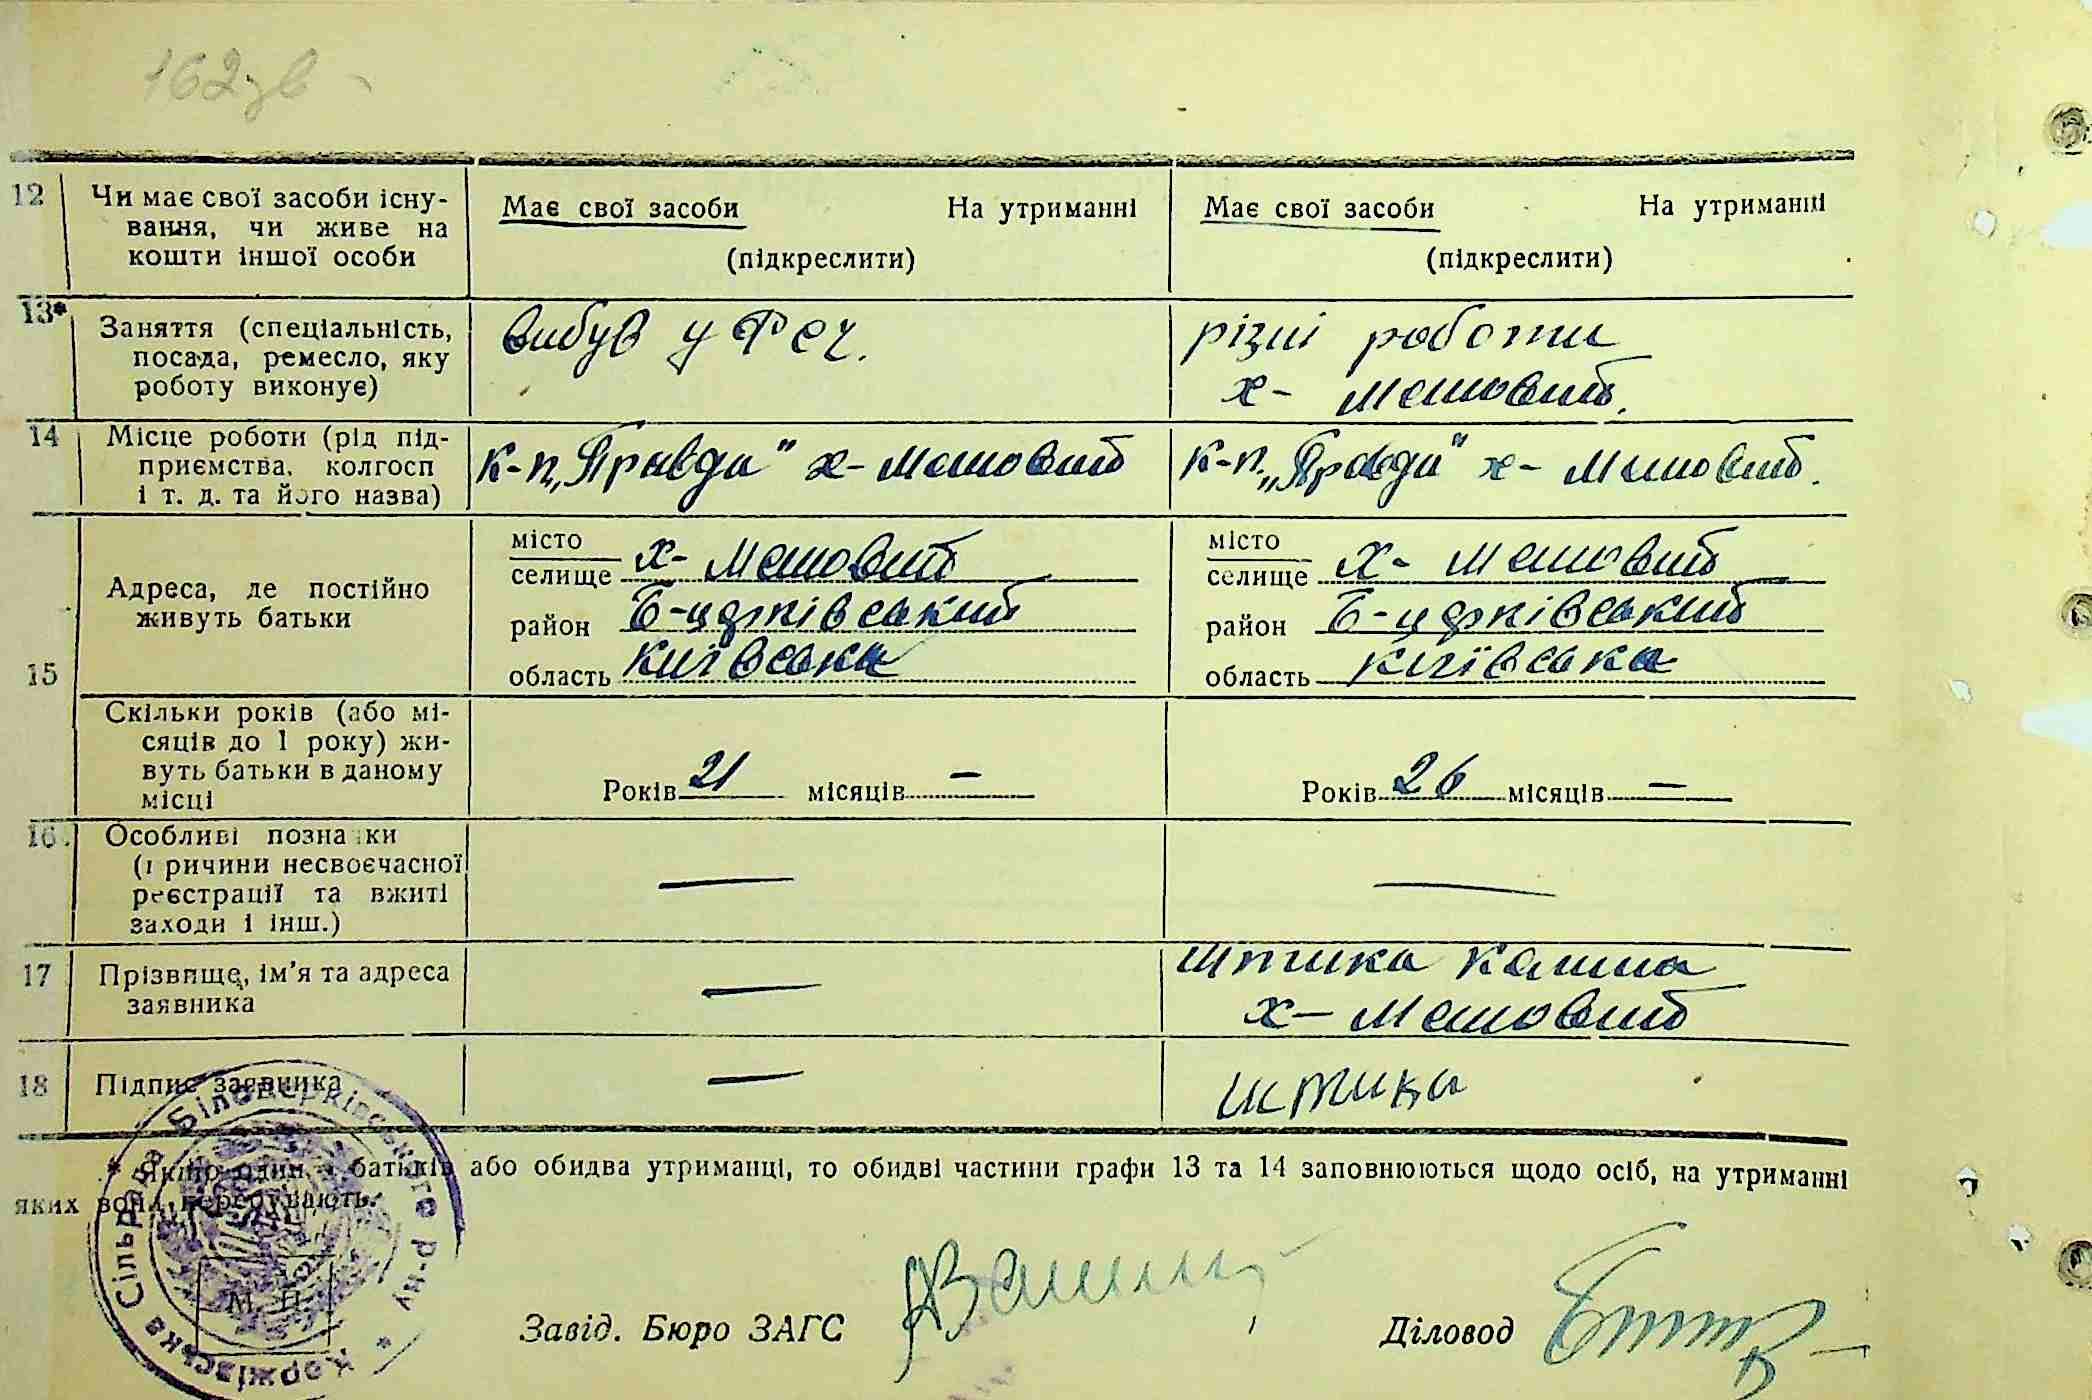 162 зв
12 Чи має свої засоби існу-
вання, чи живе на
кошти іншої особи
Має свої засоби На утриманні
(підкреслити)
Має свої засоби На утриманні
(підкреслити)
13* Заняття (спеціальність,
посада, ремесло, яку
роботу виконує)
вибув у РСЧ.
різні роботи
х-
14 Місце роботи (рід під-
приємства, колгосп
і т. д. та його назва)
к-п „Правда" х-
к-п. „Правда" х-
15 Адреса, де постійно
живуть батьки
місто
селище х-
район Б-церківський
область Київська
місто
селище х-
район Б-церківський
область Київська
Скільки років (або мі-
сяців до 1 року) жи-
вуть батьки в даному
місці
Років 21 місяців —
Років 26 місяців —
16. Особливі позначки
(причини несвоєчасної
реєстрації та вжиті
заходи і інш.)
—
—
17 Прізвище, ім'я та адреса
заявника
—
Штика Калина
х-
18 Підпис заявника
—
Штика
* Якщо один з батьків або обидва утриманці, то обидві частини графи 13 та 14 заповнюються щодо осіб, на утриманні
яких вони перебувають.
Коржівська Сільрада Білоцерківського р-ну *
М. П.
Завід. Бюро ЗАГС
Діловод